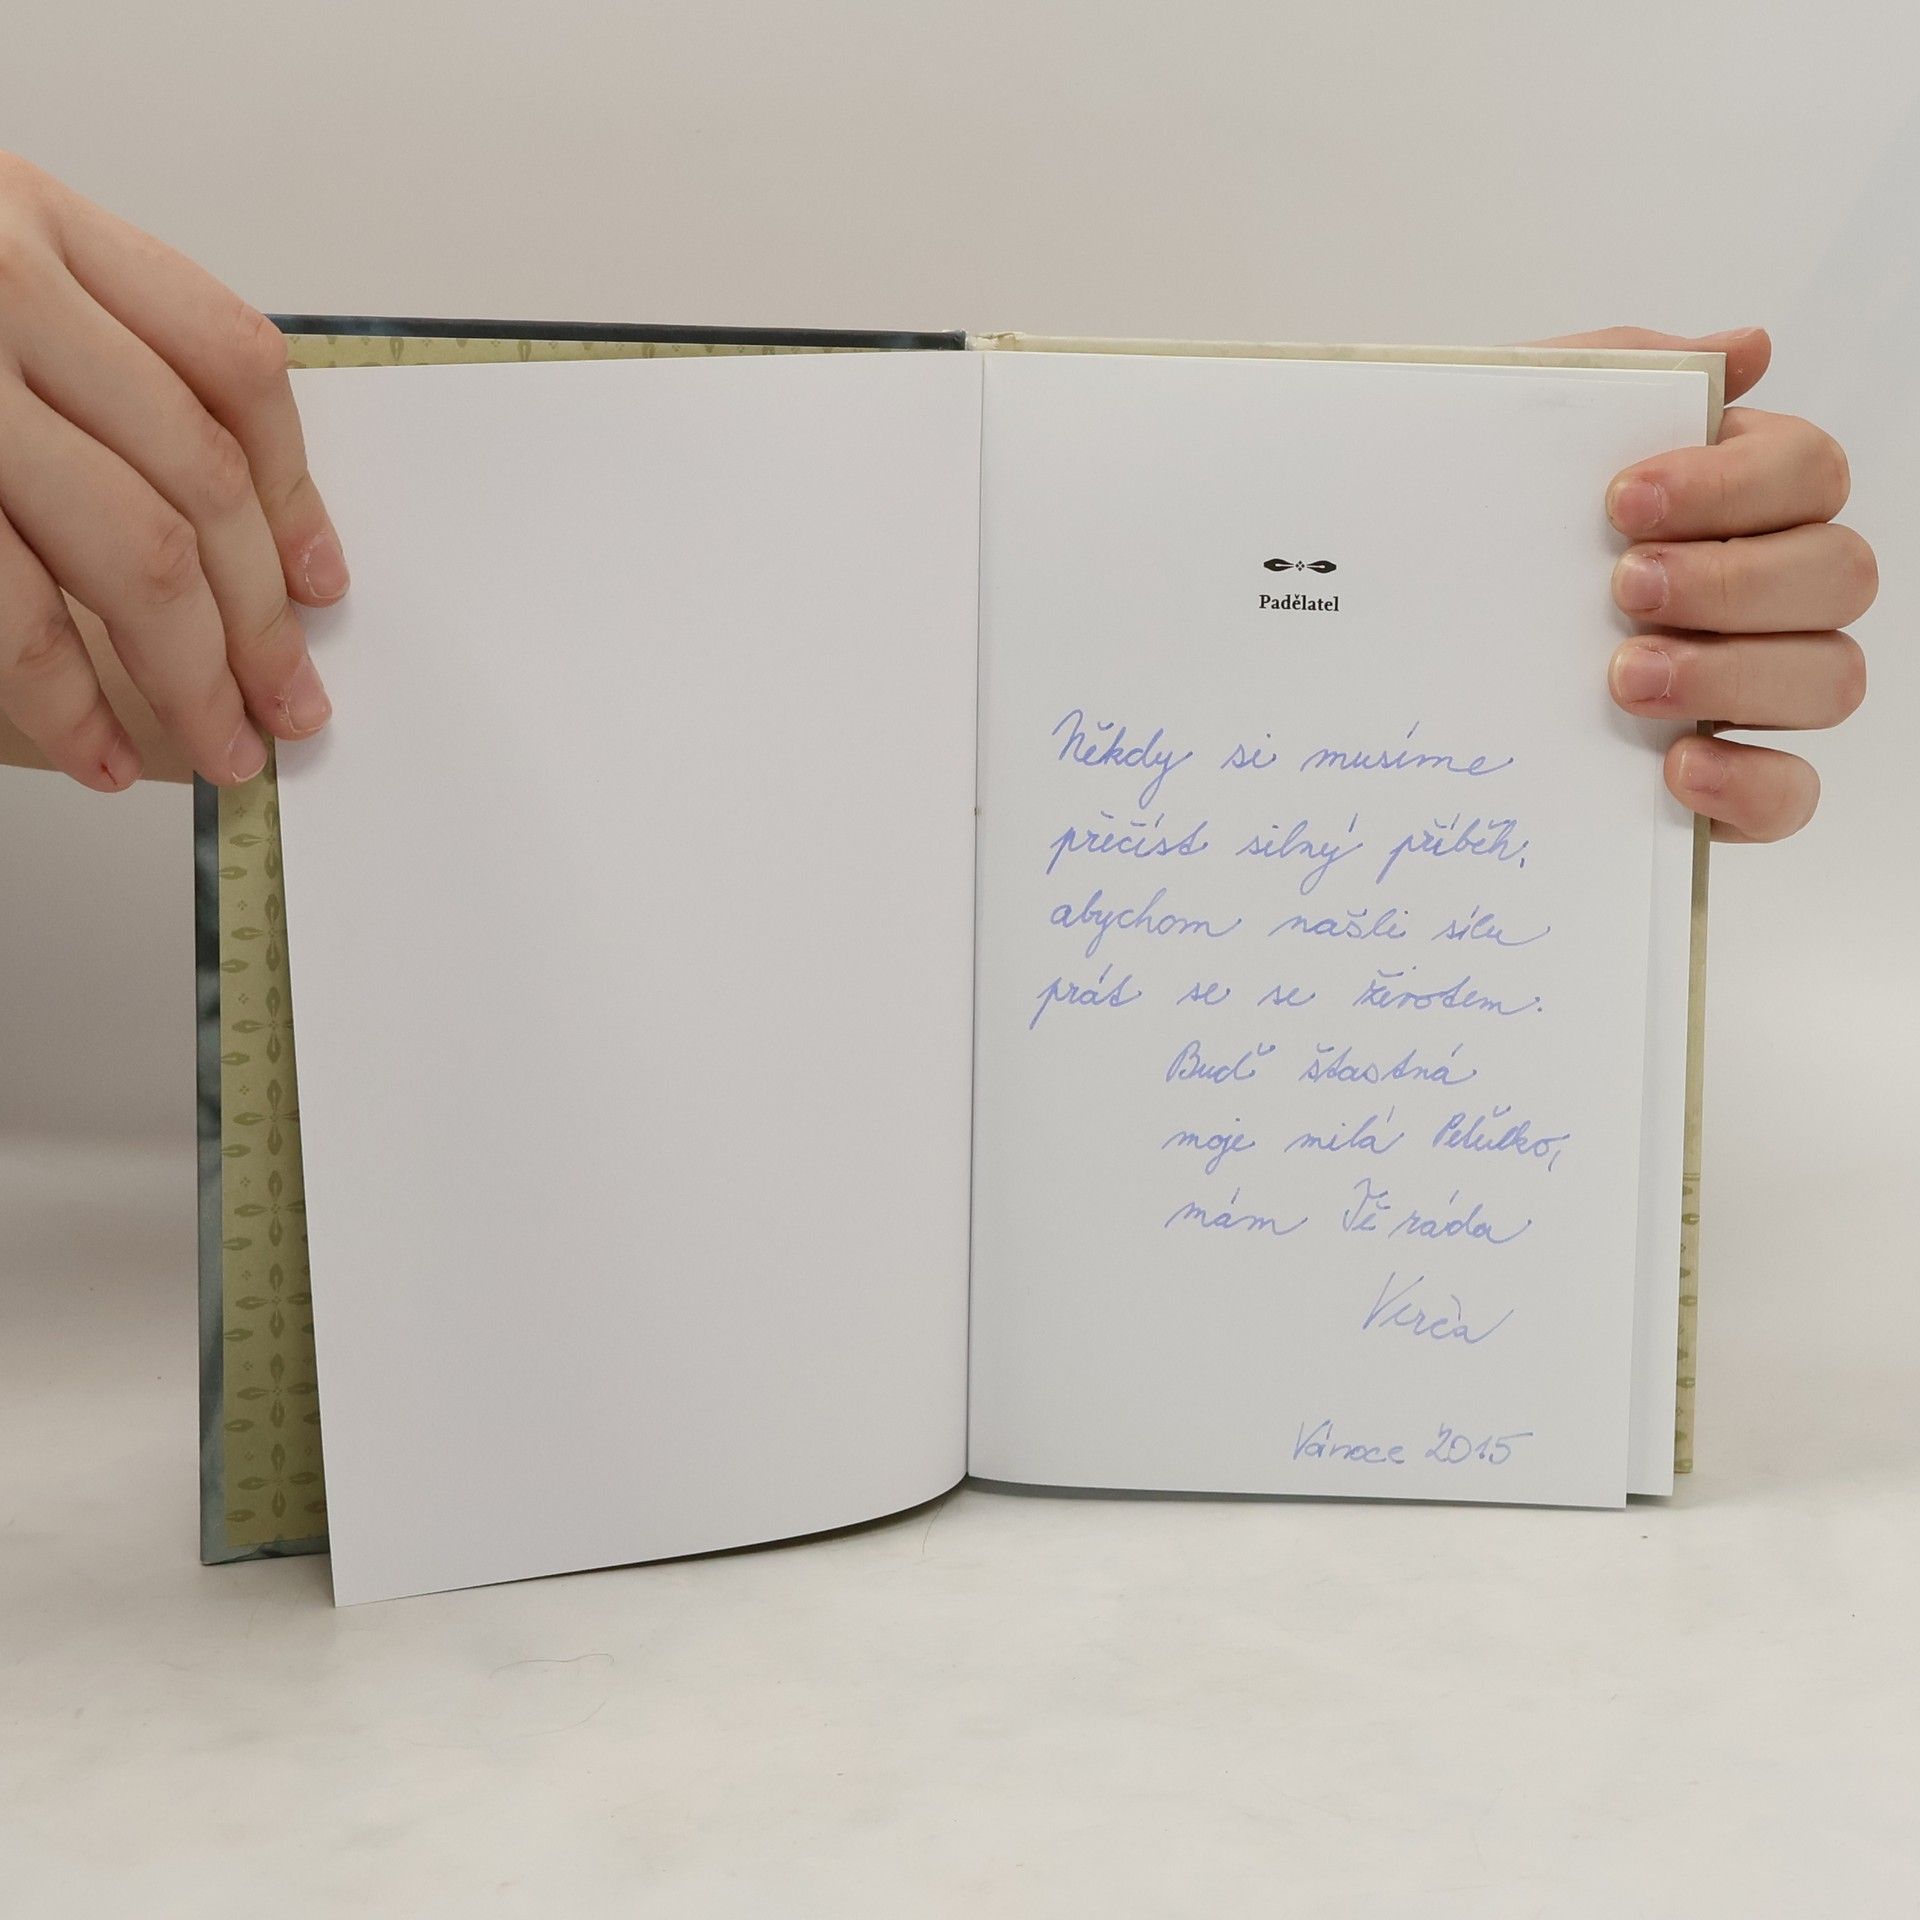 Padělatel
Někdy si musíme
přečíst silný příběh,
abychom našli sílu
prát se se životem.
Buď šťastná
moje milá Petuško,
mám Tě ráda
Verča
Vánoce 2015